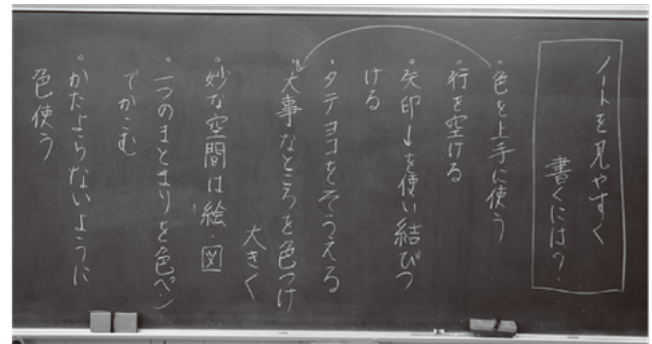 ノートを見やすく
書くには?
・色を上手に使う
・行を空ける
・矢印↓を使い結びつ
ける
・タテヨコをそろえる
・大事なところを色つけ
大きく
・妙な空間は絵・図
・一つのまとまりを色ペン
でかこむ
・かたよらないように
色使う